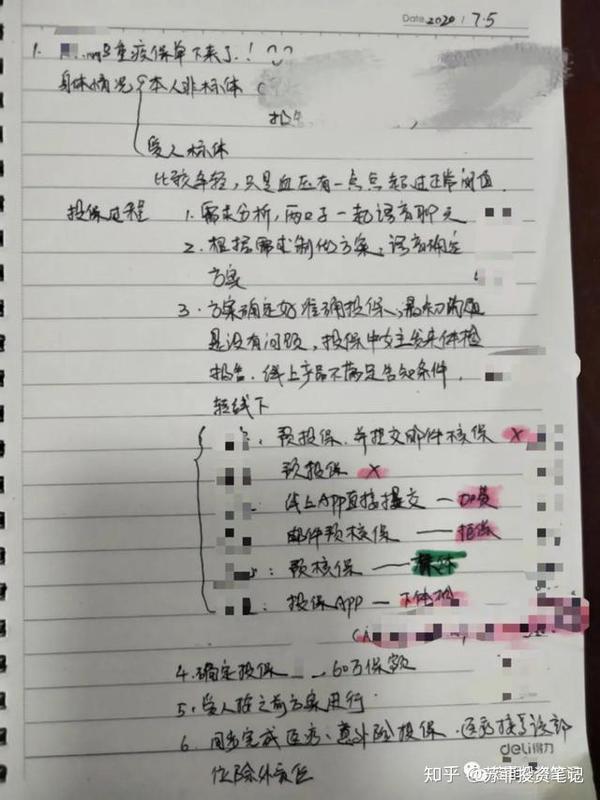 Date. 2020 / 7.5
1. 重疾保单下来了!
身体情况 本人非标体 (
爱人标体
比较年轻,只是血压有一点点超过正常阈值.
投保过程 1. 需求分析,两口子一起语音聊天
2. 根据需求制作方案,语音确定
方案
3. 方案确定好准确投保,最初
是没有问题,投保中女主发来体检
报告,线上产品不满足告知条件,
转线下
: 预投保,并提交邮件核保 ×
预投保 ×
: 线上APP直接提交 — 加费
邮件预核保 — 拒保
: 预核保 — 标体
: 投保APP — 下体检
4. 确定投保 ,60万保额
5. 爱人按之前方案进行
6. 同步完成医疗、意外险投保,医疗接受该部
位除外责任
deli得力
知乎 @苏菲投资笔记